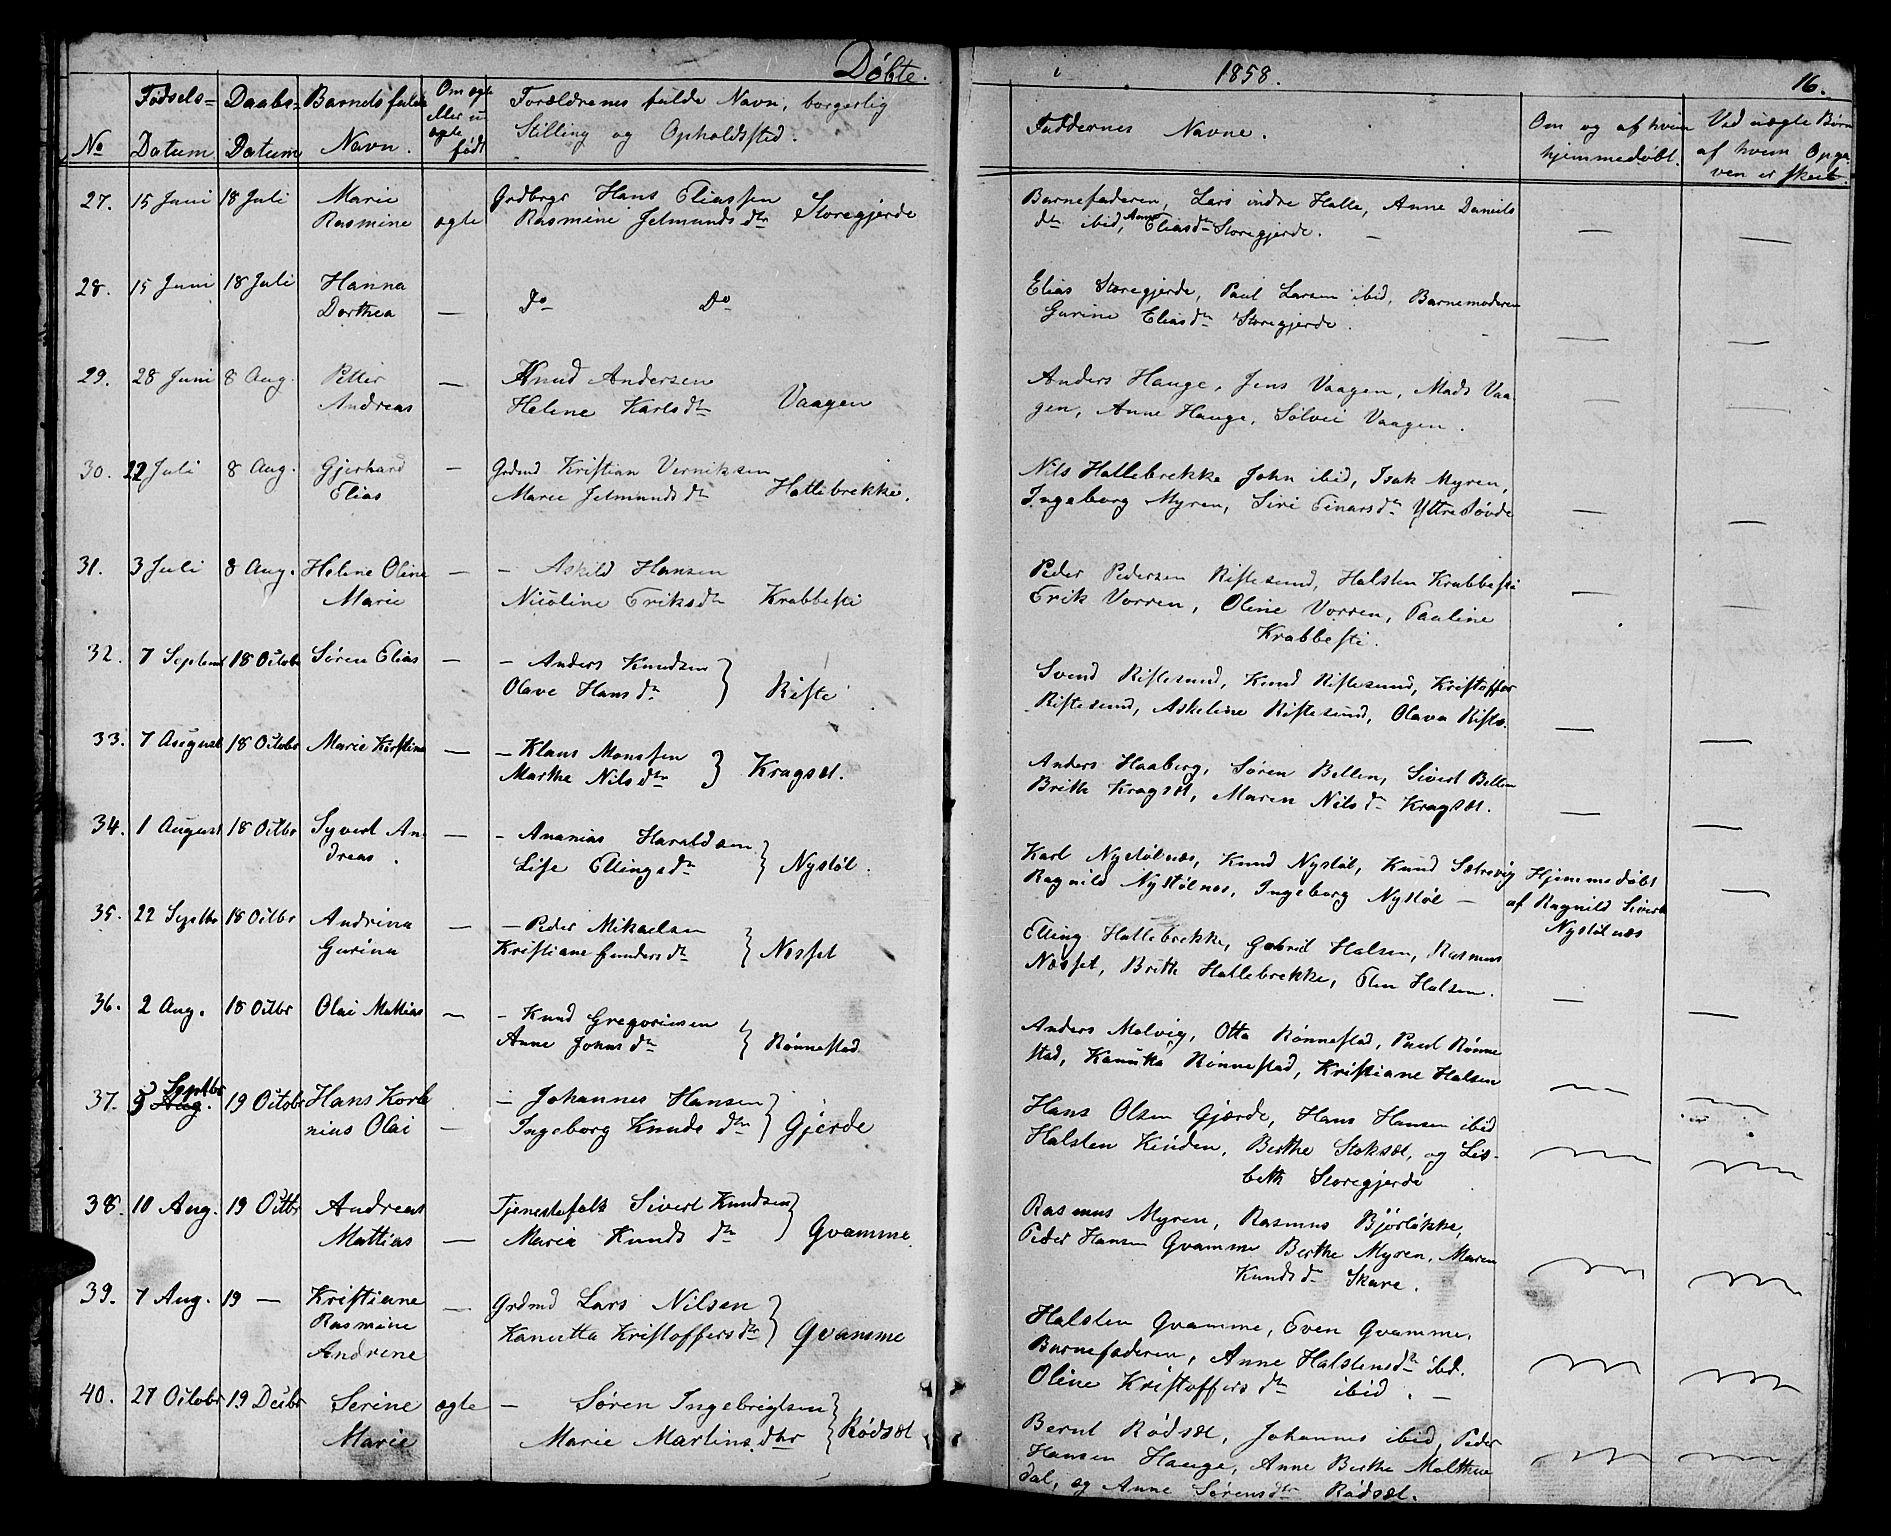 Døbte.
i 1858.
16.
No
Fødsels-
Datum
Daabs-
Datum
Barnets fulde
Navn.
Om ægte
eller u
ægte
født
Forældrenes fulde Navn, borgerlig
Stilling og Opholdssted.
Faddernes Navne.
Om og af hvem
hjemmedøbt.
Ved uægte Børn
af hvem Opga
ven er skeet.
27. 15 Juni 18 Juli Marie
Rasmine ægte
Grdbrgr Hans Eliassen
Rasmine Jetmunds dtr Storegjerde
Barnefaderen, Lars indre Halle, Anne Daniels
dtr ibid, Anne Eliasdtr Storegjerde. —
28. 15 Juni 18 Juli Hanna
Dorthea —
Do Do
Elias Storegjerde, Paul Larsen ibid, Barnemoderen
Gurine Eliasdtr Storegjerde.
29. 28 Juni 8 Aug. Petter
Andreas —
Knud Andersen
Helene Karlsdtr Vaagen
Anders Hauge, Jens Vaagen, Mads Vaa
gen, Anne Hauge, Sølvei Vaagen.
30. 22 Juli 8 Aug. Gjerhard
Elias —
Grdmd Kristian Verniksen
Marie Jetmundsdtr Hallebrekke.
Nils Hallebrekke John ibid, Isak Myren,
Ingeborg Myren, Siri Einarsdtr Yttre Søvde
31. 3 Juli 8 Aug. Helene Oline
Marie —
- Askild Hansen
Nicoline Eriksdtr Krabbesti
Peder Pedersen Riftesund, Halsten Krabbesti
Erik Vorren, Oline Vorren, Pauline
Krabbesti.
32. 7 Septem 18 Octobr Søren Elias —
- Anders Knudsen
Olave Hansdtr Rifte
Svend Riftesund, Knud Riftesund, Kristoffer
Riftesund, Askeline Riftesund, Olava Rifte.
33. 7 August 18 Octobr Marie Kirstine —
- Klaus Monssen
Marthe Nilsdtr Kragset.
Anders Haaberg, Søren Bellen, Sivert Bellen
Brithe Kragset, Maren Nilsdtr Kragset.
34. 1 August 18 Octbr Syvert An-
dreas. —
- Ananias Haraldsen
Lise Ellingsdtr Nystøl.
Karl Nystølnæs, Knud Nystøl, Knud Sætrevig
Ragnild Nystølnes, Ingeborg Nystøl —
Hjemmedøbt
af Ragnild Siverts
Nystølnæs
35. 22 Septbr 18 Octbr Andrina
Gurina —
- Peder Mikaelsen
Kristiane Gundersdtr Nesset
Elling Hallebrekke, Gabriel Halsen, Rasmus
Næsset, Brithe Hallebrekke, Elen Halsen.
36. 2 Aug. 18 Octbr Olai Mathias —
- Knud Gregoriusen
Anne Johnsdtr Rønnestad
Anders Molvig, Otto Rønnestad, Paul Rønne
stad, Kanutta Rønnestad, Kristiane Halsen
Septbr
37. 5 Aug. 19 Octobr Hans Korle
nius Olai —
- Johannes Hansen
Ingeborg Knuds dtr Gjerde
Hans Olsen Gjærde, Hans Hansen ibid
Halsten Kinden, Berthe Stoksæt, og Lis-
beth Storegjerde
38. 10 Aug. 19 Octbr Andreas
Mattias —
Tjenestefolk Sivert Knudsen
Maria Knuds dtr Gvamme
Rasmus Myren, Rasmus Bjørløkke,
Peder Hansen Gvamme Berthe Myren, Maren
Knudsdtr Skare.
39. 7 Aug. 19 — Kristiane
Rasmine
Andrine —
Grdmd Lars Nilsen
Kanutta Kristoffersdtr Gvamme
Halsten Gvamme, Even Gvamme,
Barnefaderen, Anne Halstensdtr ibd.
Oline Kristoffers dtr ibid. —
40. 27 Octobr 19 Decbr Serine
Marie ægte
- Søren Ingebrigtsen
Marie Martins dtr Rødsæt
Bernt Rødsæt, Johannes ibid, Peder
Hansen Hauge, Anne Berthe Malthue
dal, og Anne Sørensdtr Rødsæt.